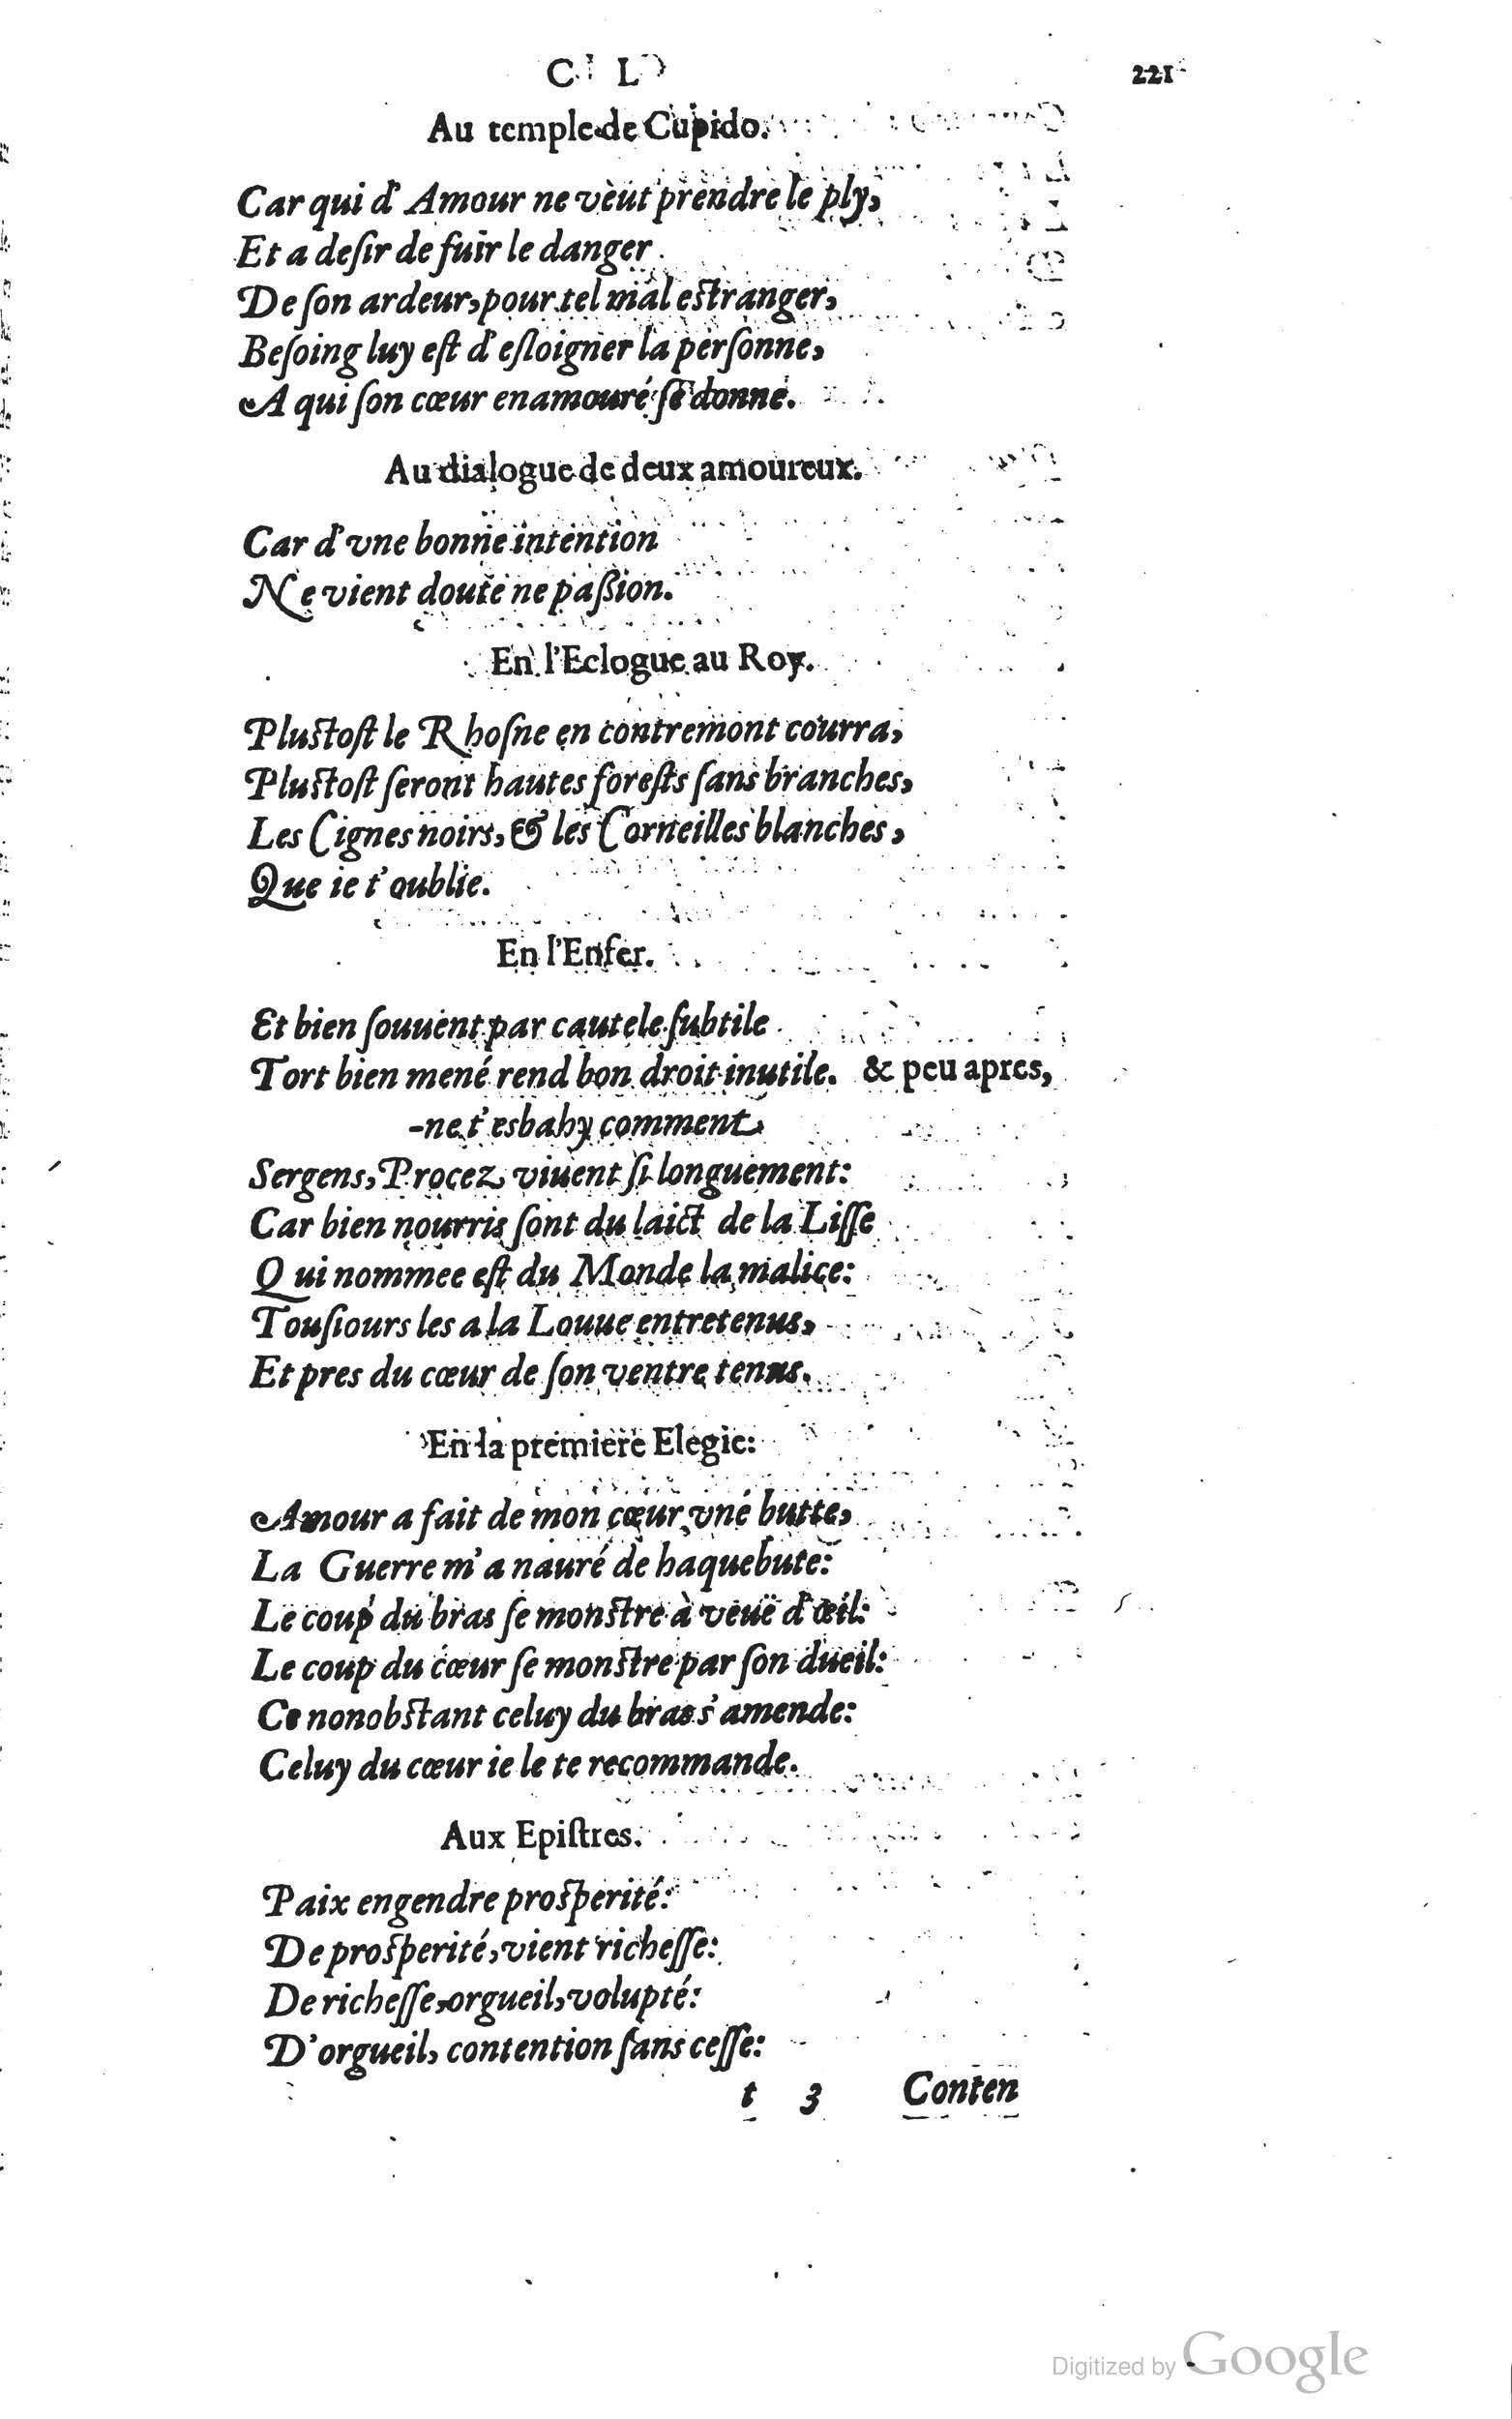 C L 221
Au temple de Cupido.
Car qui d'Amour ne veut prendre le ply,
Et a deſir de fuir le danger
De ſon ardeur, pour tel mal eſtranger,
Beſoing luy eſt d'eſloigner la perſonne,
A qui ſon cœur enamouré ſe donne.
Au dialogue de deux amoureux.
Car d'vne bonne intention
Ne vient doute ne paßion.
En l'Eclogue au Roy.
Pluſtoſt le Rhoſne en contremont courra,
Pluſtoſt ſeront hautes foreſts ſans branches,
Les Cignes noirs, & les Corneilles blanches,
Que ie t'oublie.
En l'Enfer.
Et bien ſouuent par cautele ſubtile
Tort bien mené rend bon droit inutile. & peu apres,
-ne t'esbahy comment
Sergens, Procez viuent ſi longuement:
Car bien nourris ſont du laict de la Liſſe
Qui nommee eſt du Monde la malice:
Touſiours les a la Louue entretenus,
Et pres du cœur de ſon ventre tenus.
En la premiere Elegie:
Amour a fait de mon cœur vne butte,
La Guerre m'a nauré de haquebute:
Le coup du bras ſe monſtre à veuë d'œil:
Le coup du cœur ſe monſtre par ſon dueil:
Ce nonobſtant celuy du bras s'amende:
Celuy du cœur ie le te recommande.
Aux Epiſtres.
Paix engendre proſperité:
De proſperité, vient richeſſe:
De richeſſe, orgueil, volupté:
D'orgueil, contention ſans ceſſe:
t 3 Conten
Digitized by Google